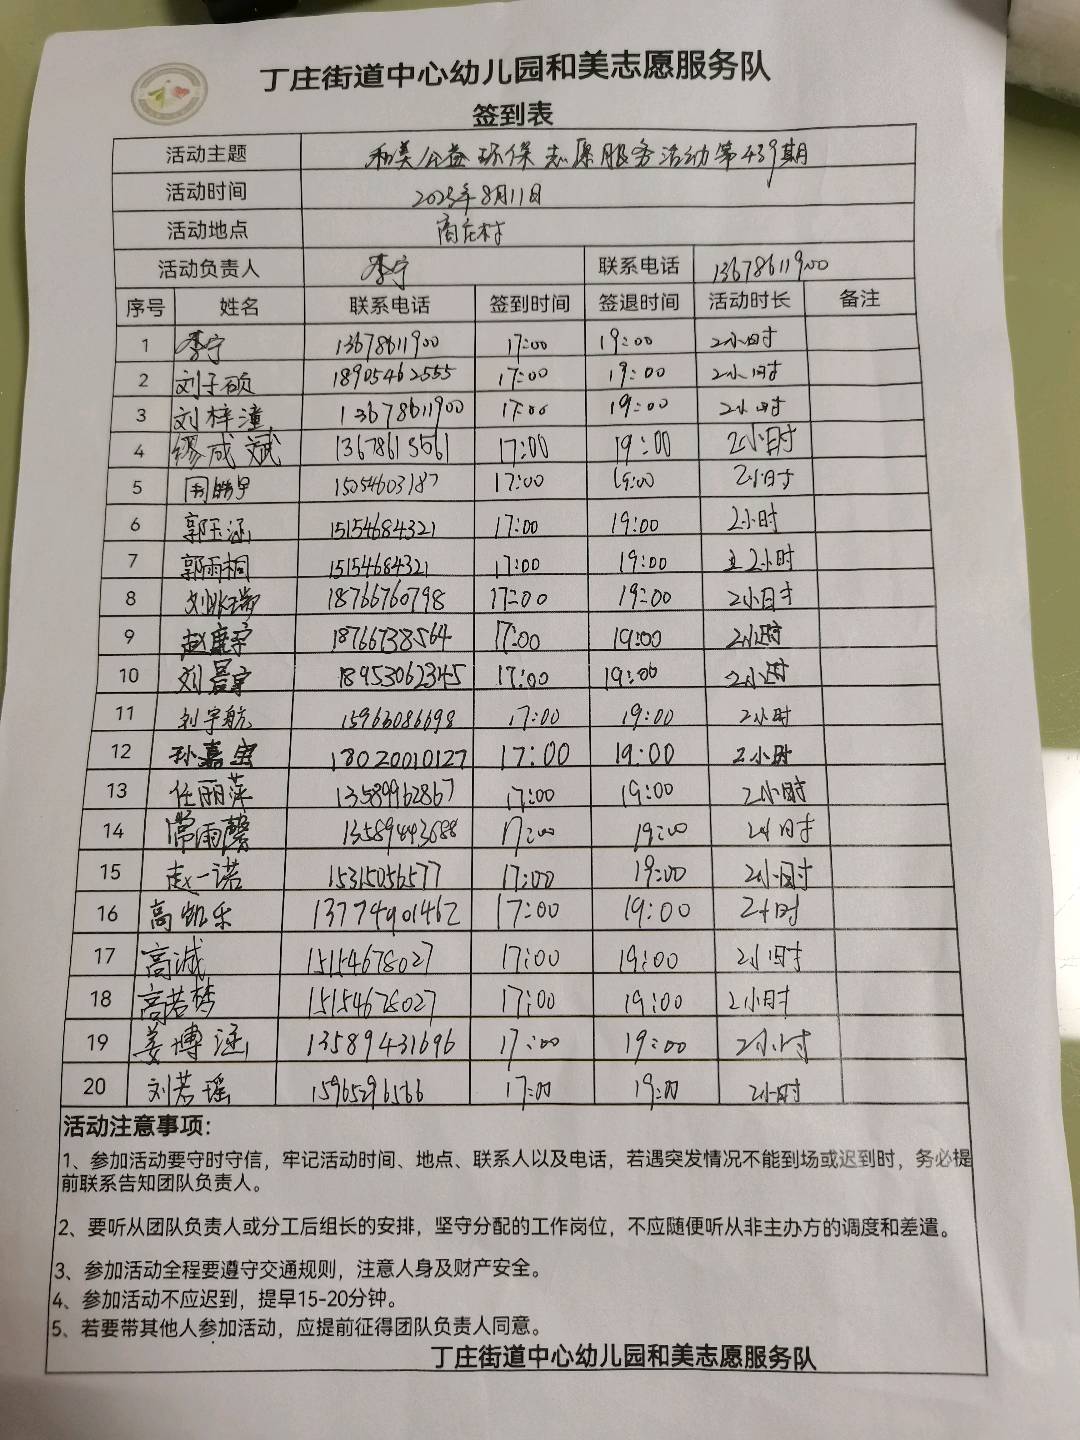 丁庄街道中心幼儿园和美志愿服务队
签到表
活动主题 和美公益环保志愿服务活动第439期
活动时间 2025年8月11日
活动地点 商庄村
活动负责人 李宁 联系电话 13678611900
序号 姓名 联系电话 签到时间 签退时间 活动时长 备注
1 李宁 13678611900 17:00 19:00 2小时
2 刘子硕 18905462555 17:00 19:00 2小时
3 刘梓潼 13678611900 17:00 19:00 2小时
4 缪成斌 13678613561 17:00 19:00 2小时
5 15054603187 17:00 19:00 2小时
6 郭玉涵 15154684321 17:00 19:00 2小时
7 郭雨桐 15154684321 17:00 19:00 2小时
8 刘兆瑞 18766760798 17:00 19:00 2小时
9 赵康宇 18766738564 17:00 19:00 2小时
10 刘晨宇 18953062345 17:00 19:00 2小时
11 刘宇航 15966086698 17:00 19:00 2小时
12 孙嘉宝 18020010127 17:00 19:00 2小时
13 任丽萍 13589962867 17:00 19:00 2小时
14 常雨馨 13589443688 17:00 19:00 2小时
15 赵一诺 15315056577 17:00 19:00 2小时
16 高凯乐 13774901462 17:00 19:00 2小时
17 高诚 15154678027 17:00 19:00 2小时
18 高若梦 15154678027 17:00 19:00 2小时
19 姜博涵 13589431696 17:00 19:00 2小时
20 刘若瑶 15965296566 17:00 19:00 2小时
活动注意事项：
1、参加活动要守时守信，牢记活动时间、地点、联系人以及电话，若遇突发情况不能到场或迟到时，务必提
前联系告知团队负责人。
2、要听从团队负责人或分工后组长的安排，坚守分配的工作岗位，不应随便听从非主办方的调度和差遣。
3、参加活动全程要遵守交通规则，注意人身及财产安全。
4、参加活动不应迟到，提早15-20分钟。
5、若要带其他人参加活动，应提前征得团队负责人同意。
丁庄街道中心幼儿园和美志愿服务队